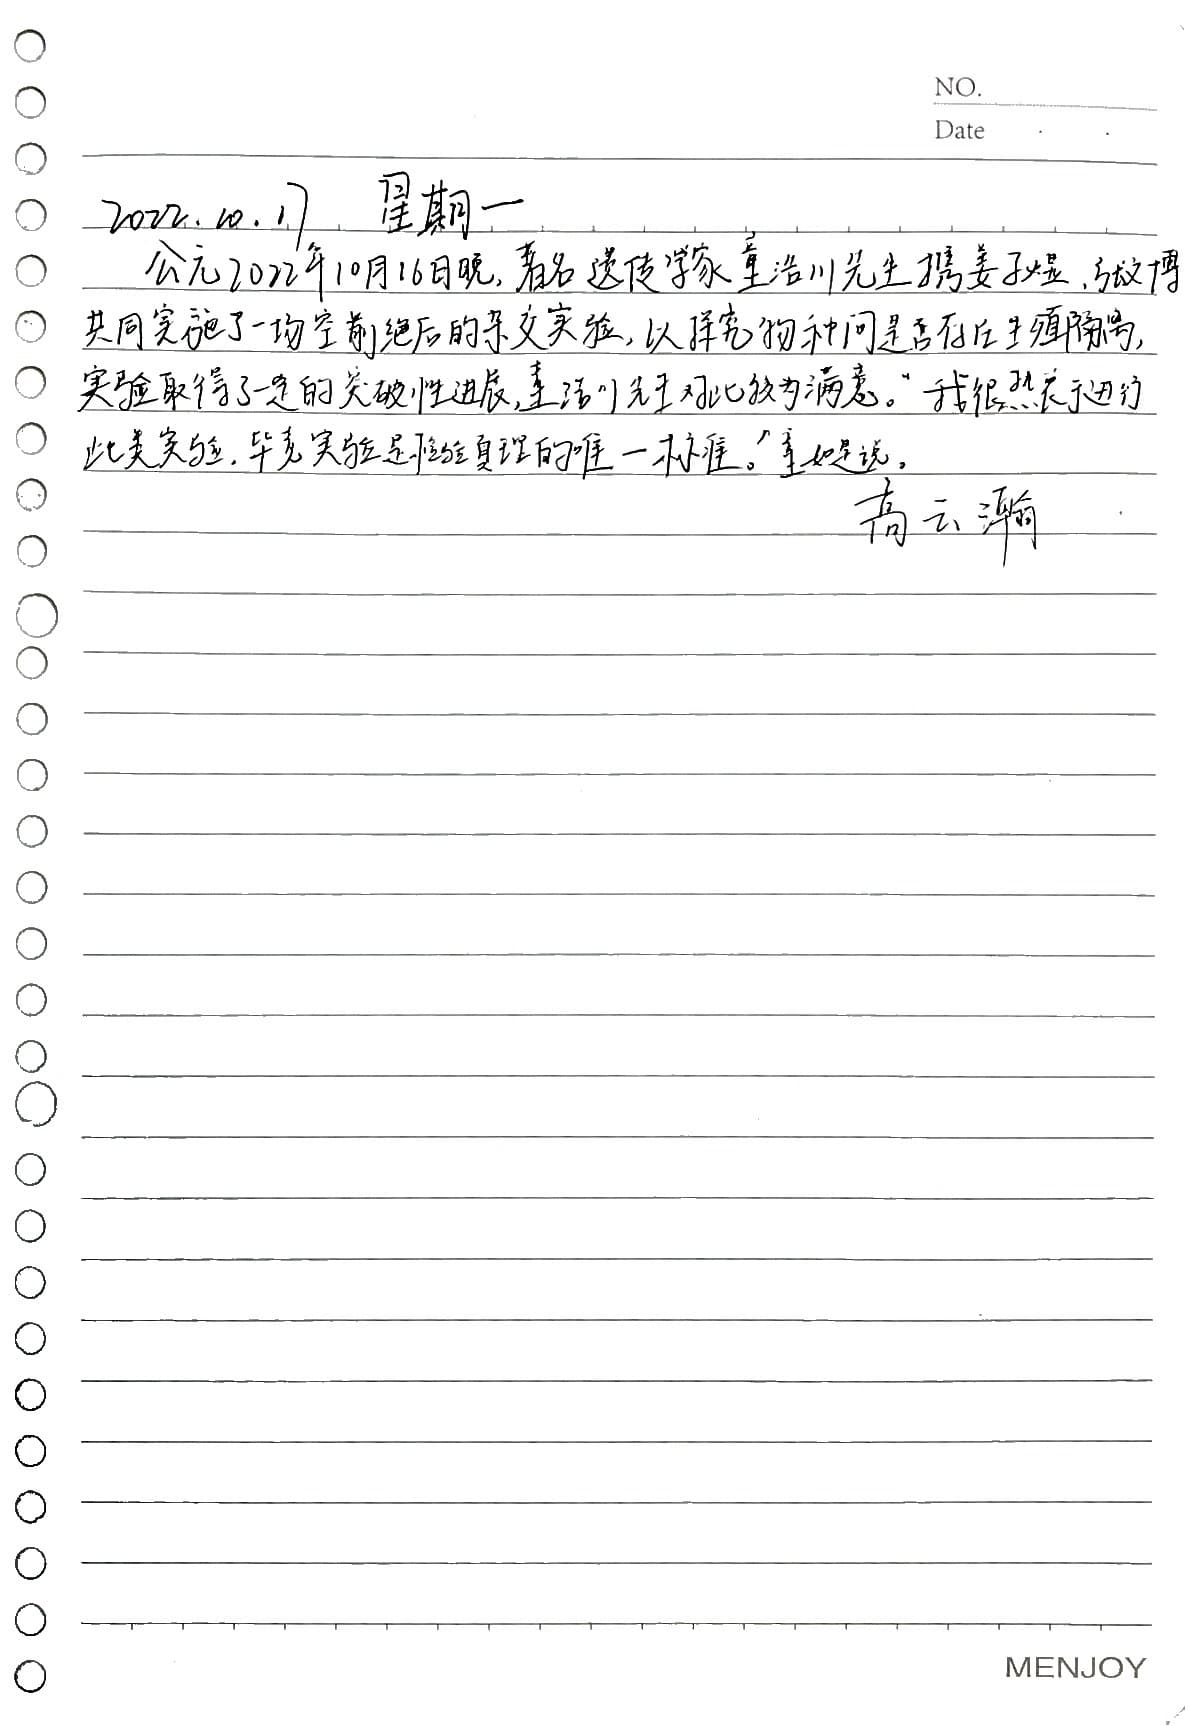 NO.
Date
2022.10.17 星期一
公元2022年10月16日晚,著名遗传学家童浩川先生携姜子煜、张博
共同实施了一场空前绝后的杂交实验,以探究物种间是否存在生殖隔离,
实验取得了一定的突破性进展,童浩川先生对此较为满意。"我很热衷于进行
此类实验,毕竟实验是检验真理的唯一标准。"童如是说。
高云瀚
MENJOY